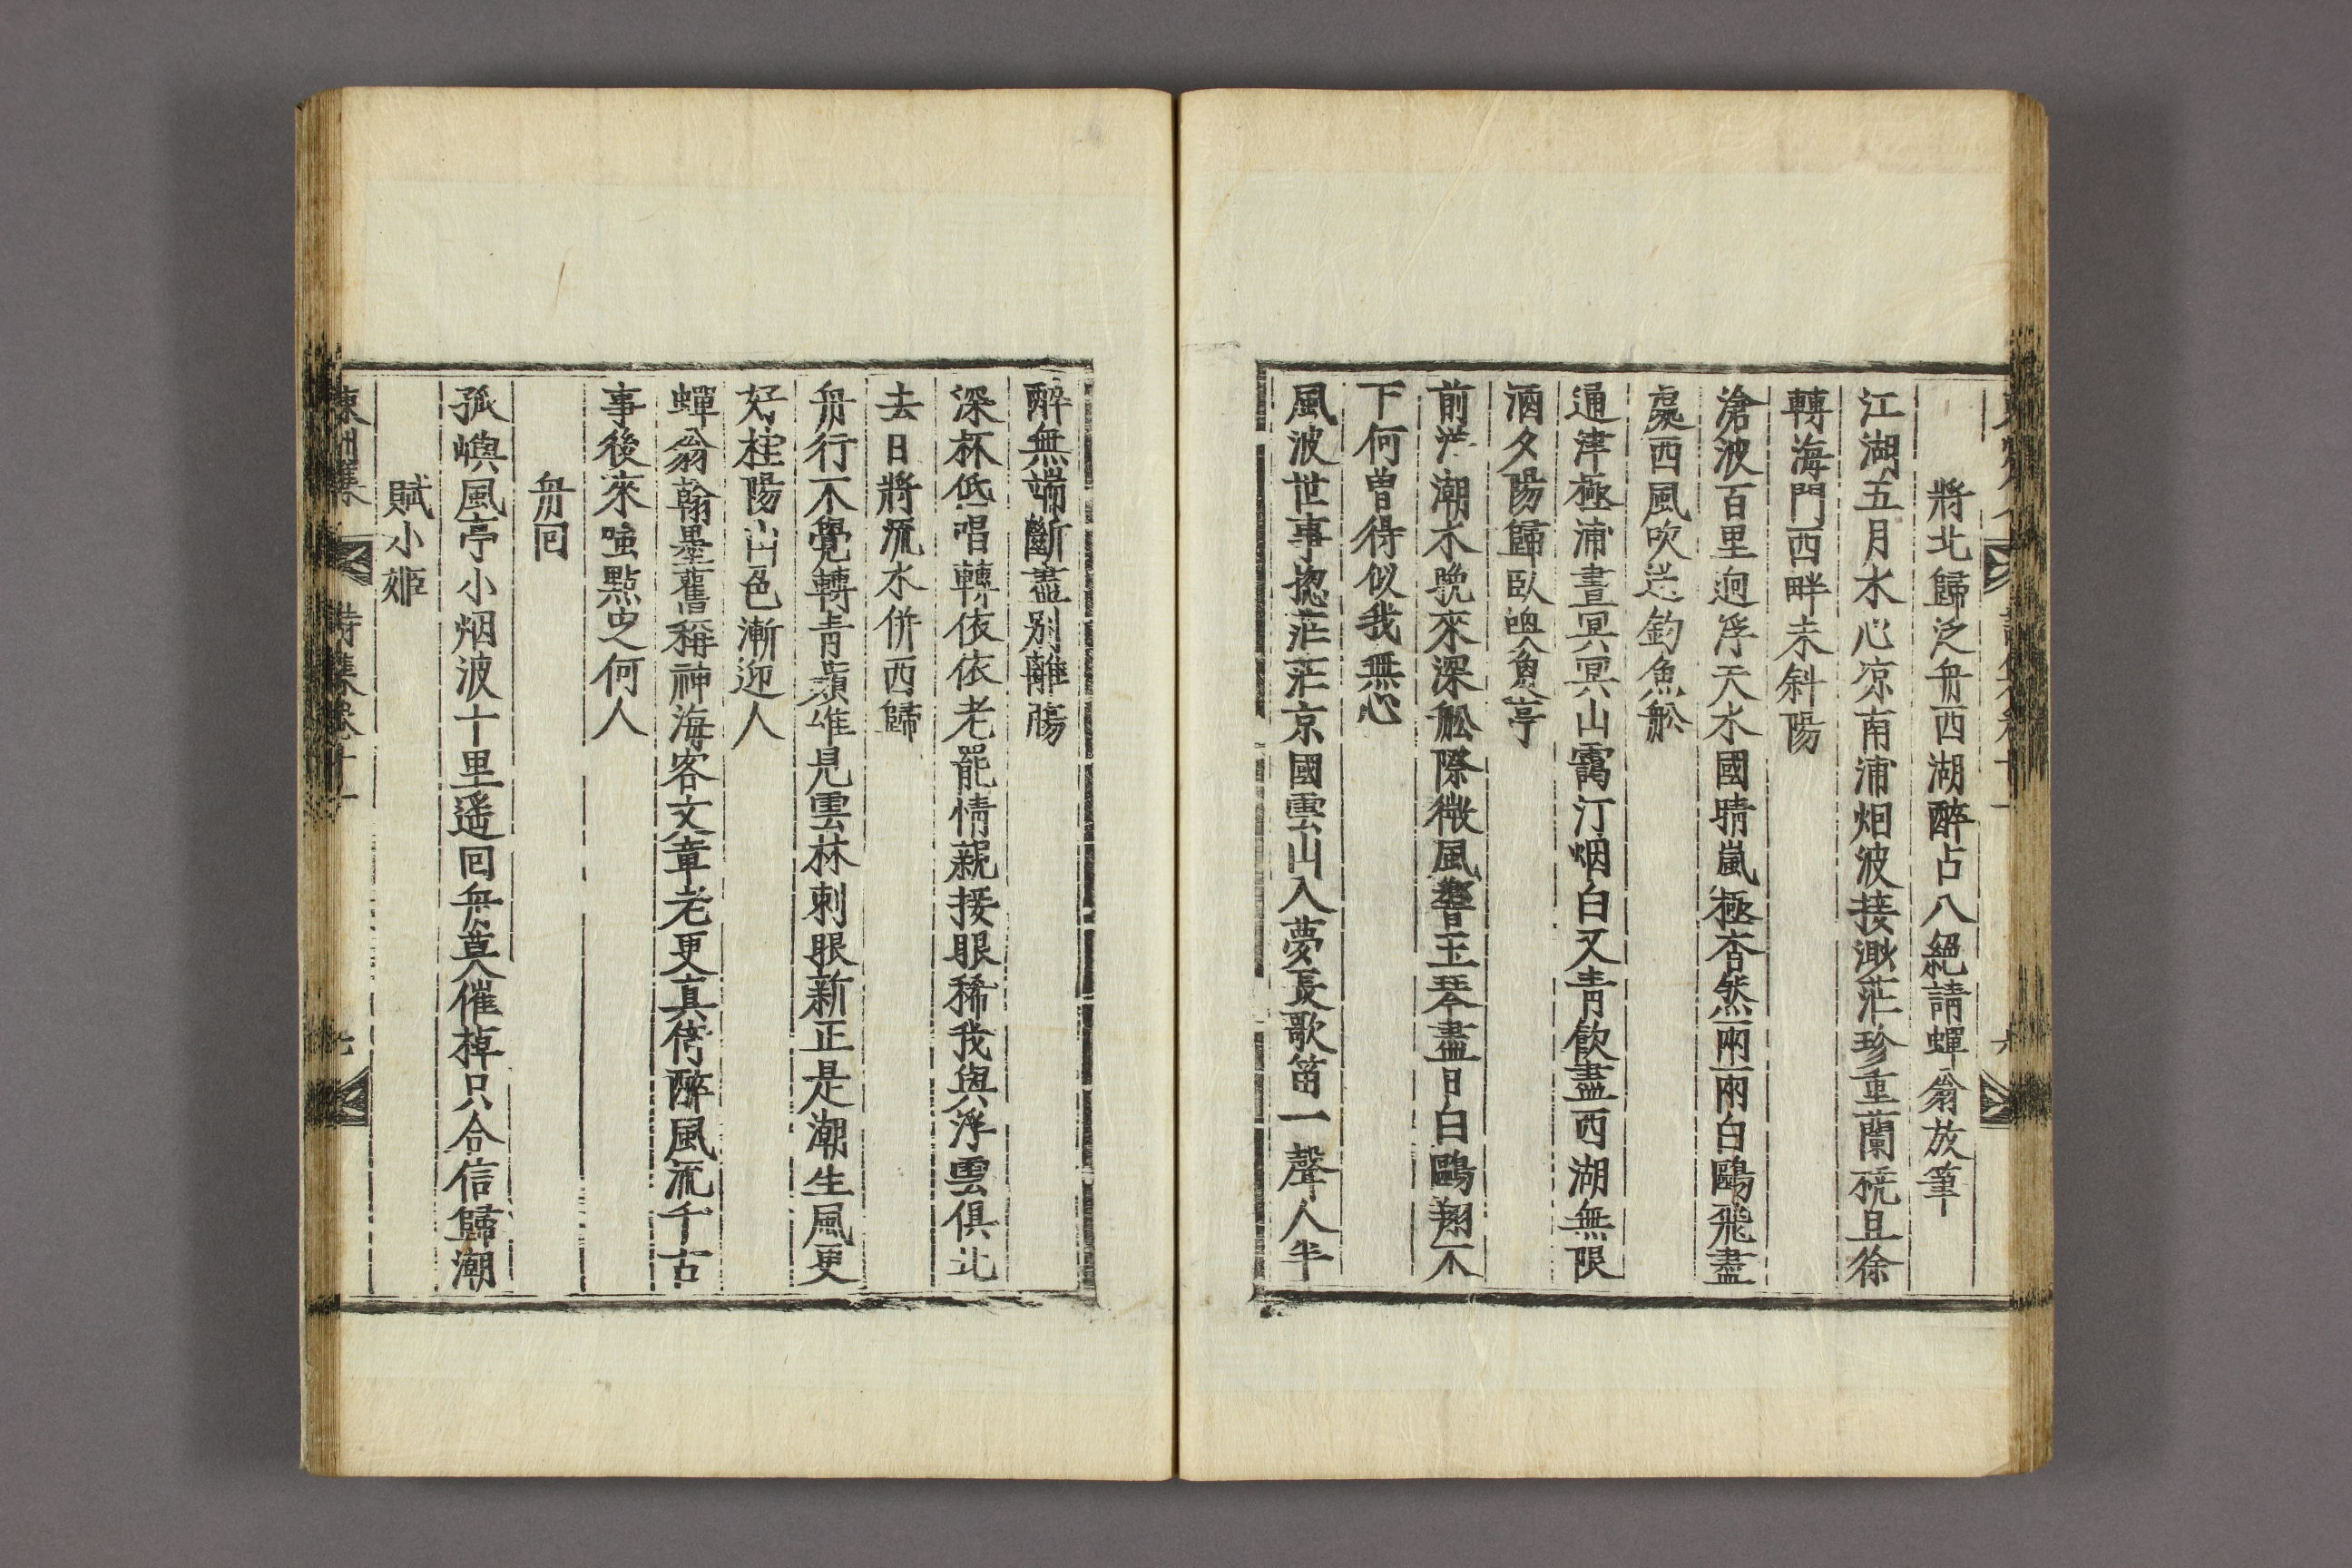 將北歸泛舟西湖醉占八絕請蟬翁放筆
江湖五月水心凉南浦烟波接渺茫珍重蘭橈且徐
轉海門西畔未斜陽
滄波百里迥浮天水國晴嵐極杳然兩兩白鷗飛盡
處西風吹送釣魚舩
通津極浦晝冥冥山靄汀烟白又青飮盡西湖無限
酒夕陽歸臥奧魚亭
前洋潮水晩來深舩際微風響玉琴盡日白鷗翔不
下何曾得似我無心
風波世事揔茫茫京國雲山入夢長歌笛一聲人半
醉無端斷盡別離膓
深杯低唱轉依依老罷情親接眼稀我與浮雲俱北
去日將流水併西歸
舟行不覺轉青蘋唯見雲林刺眼新正是潮生風更
好桂陽山色漸迎人
蟬翁翰墨舊稱神海客文章老更眞倚醉風流千古
事後來嗤點定何人
舟回
孤嶼風亭小烟波十里遥回舟莫催棹只合信歸潮
賦小姬
東州集 詩集卷十一 七